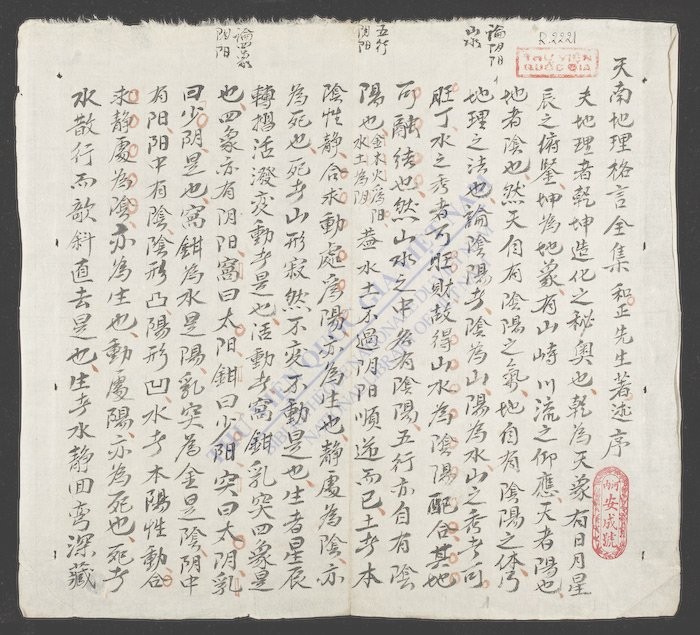 R.2221
THƯ VIỆN
QUỐC GIA
天南地理格言全集 和正先生著述序
夫地理者乾坤造化之秘奥也乾為天象有日月星
辰之俯鍳坤為地象有山峙川流之仰應天者陽也
地者陰也然天自有陰陽之氣地自有陰陽之体乃
地理之法也論陰陽者陰為山陽為水山之秀者可
旺丁水之秀者可旺財故得山水為陰陽配合其地
可融結也然山水之中各有陰陽五行亦自有陰
陽也金木火為阳水土為阴盖水土不過阴阳順逆而已土者本
陰性静合求動處為陽亦為生也静處為陰亦
為死也死者山形寂然不変不動是也生者星辰
轉摺活潑変動者是也活動者窩鉗乳突四象是
也四象亦有阴阳窩曰太阳鉗曰少阳突曰太阴乳
曰少阴是也窩鉗為水是陽乳突為金是陰阴中
有阳阳中有陰陰形凸陽形凹水者本陽性動合
求静處為陰亦為生也動處陽亦為死也死者
水散行而欹斜直去是也生者水静回弯深藏
論阴阳
山水
五行
阴阳
論四象
阴阳
河内
安成號
THƯ VIỆN QUỐC GIA VIỆT NAM
NATIONAL LIBRARY OF VIETNAM